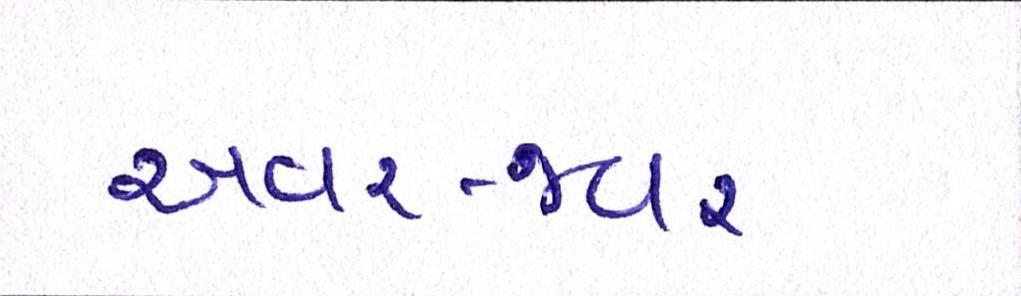 અવર-જવર